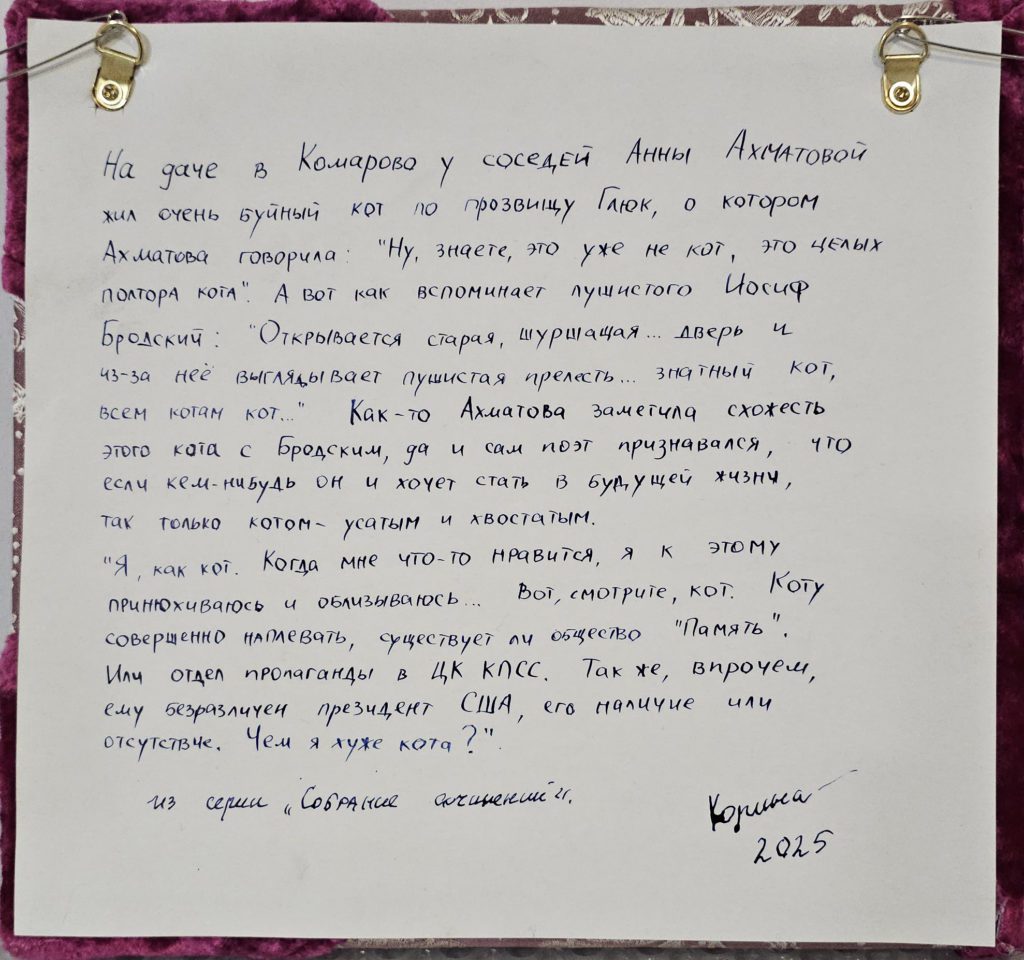 На даче в Комарово у соседей Анны Ахматовой
жил очень буйный кот по прозвищу Глюк, о котором
Ахматова говорила: "Ну, знаете, это уже не кот, это целых
полтора кота". А вот как вспоминает пушистого Иосиф
Бродский: "Открывается старая, шуршащая... дверь и
из-за неё выглядывает пушистая прелесть... знатный кот,
всем котам кот..." Как-то Ахматова заметила схожесть
этого кота с Бродским, да и сам поэт признавался, что
если кем-нибудь он и хочет стать в будущей жизни,
так только котом - усатым и хвостатым.
"Я, как кот. Когда мне что-то нравится, я к этому
принюхиваюсь и облизываюсь... Вот, смотрите, кот. Коту
совершенно наплевать, существует ли общество "Память".
Или отдел пропаганды в ЦК КПСС. Так же, впрочем,
ему безразличен президент США, его наличие или
отсутствие. Чем я хуже кота?".
из серии „Собрание сочинений".
Корина
2025